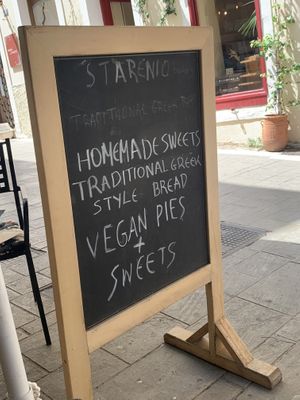 STARENIO
TRADITIONAL GREEK
HOMEMADE SWEETS
TRADITIONAL GREEK
STYLE BREAD
VEGAN PIES
+
SWEETS